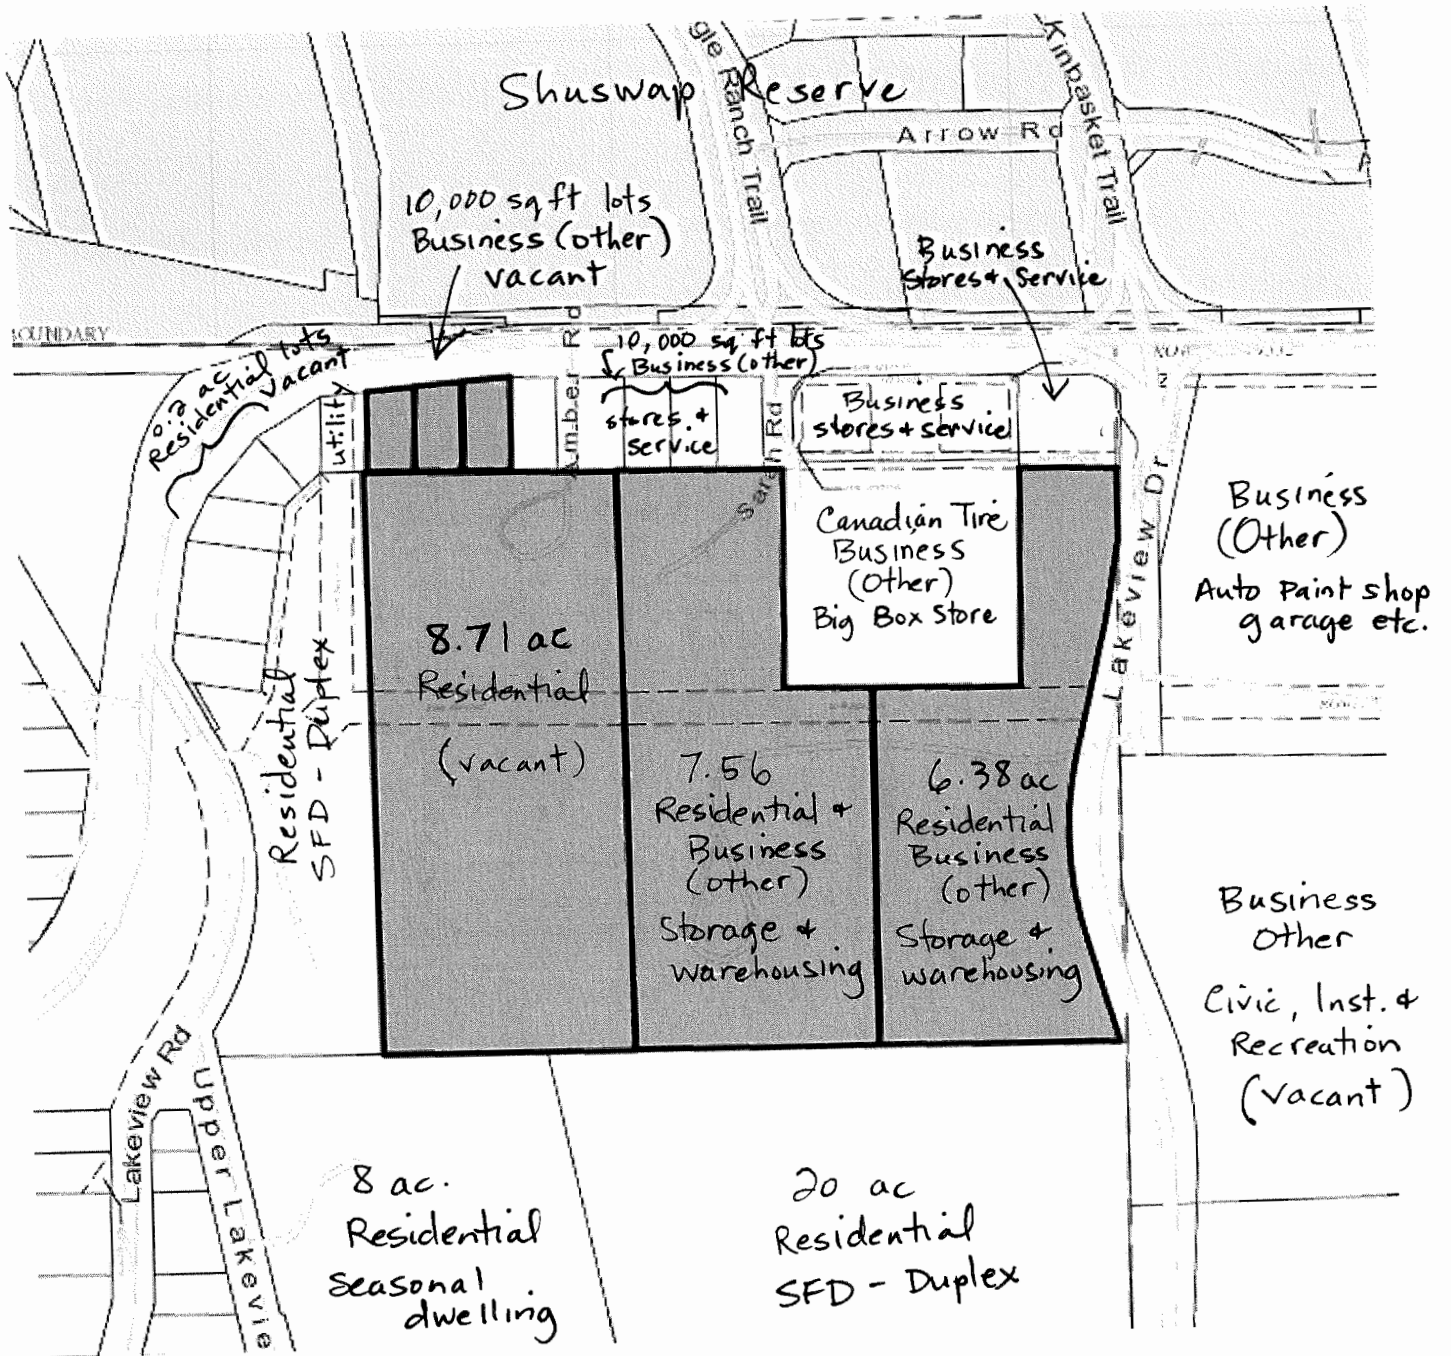 Shuswap Reserve
gle Ranch Trail
Kinbasket Trail
Arrow Rd
10,000 sq ft lots
Business (other)
vacant
Business
stores + Service
BOUNDARY
0.2 ac
Residential lots
vacant
utility
Amber Rd
10,000 sq ft lots
Business (other)
stores +
service
Sarah Rd
Business
stores + service
Canadian Tire
Business
(Other)
Big Box Store
Lakeview Dr
Business
(Other)
Auto Paint shop
garage etc.
Residential
SFD - Duplex
8.71 ac
Residential
(vacant)
7.56
Residential +
Business
(other)
Storage +
warehousing
6.38 ac
Residential
Business
(other)
Storage +
warehousing
Business
Other
Civic, Inst. +
Recreation
(vacant)
Lakeview Rd
Upper Lakevie
8 ac.
Residential
Seasonal
dwelling
20 ac
Residential
SFD - Duplex